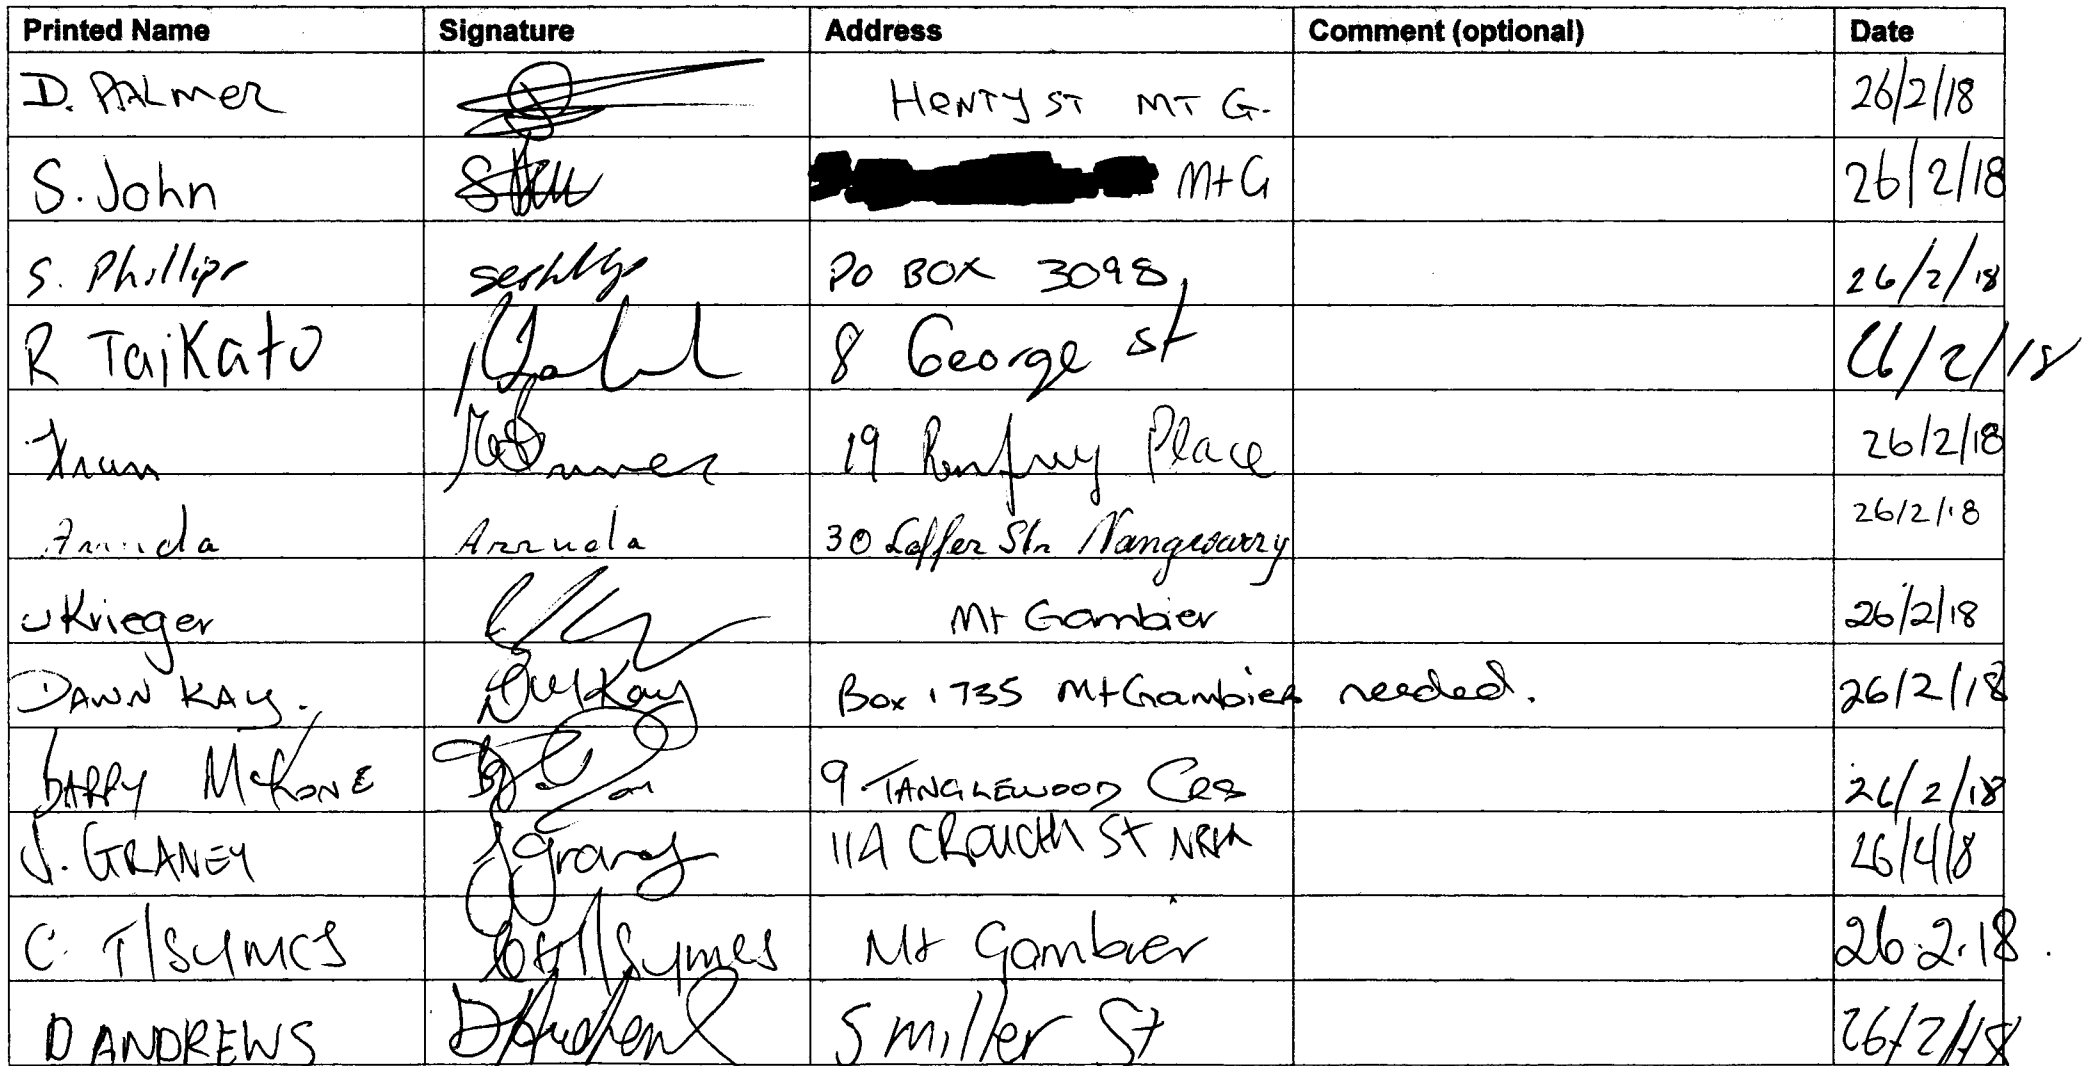 Printed Name Signature Address Comment (optional) Date
D. PALmer HeNTY ST MT G. 26/2/18
S. John Mt G 26/2/18
S. Phillips PO BOX 3098 26/2/18
R Taikato 8 George st 26/2/18
19 Renfrey Place 26/2/18
30 Laffer Str Nangwarry 26/2/18
Krieger Mt Gambier 26/2/18
DAWN KAY. Box 1735 Mt Gambier needed. 26/2/18
BARRY McKONE 9 TANGLEWOOD Cres 26/2/18
J. GRANEY J Graney 11A CROUCH St 26/4/8
C. T/SYMES T/Symes Mt Gambier 26.2.18.
D ANDREWS 5 miller St 26/2/18